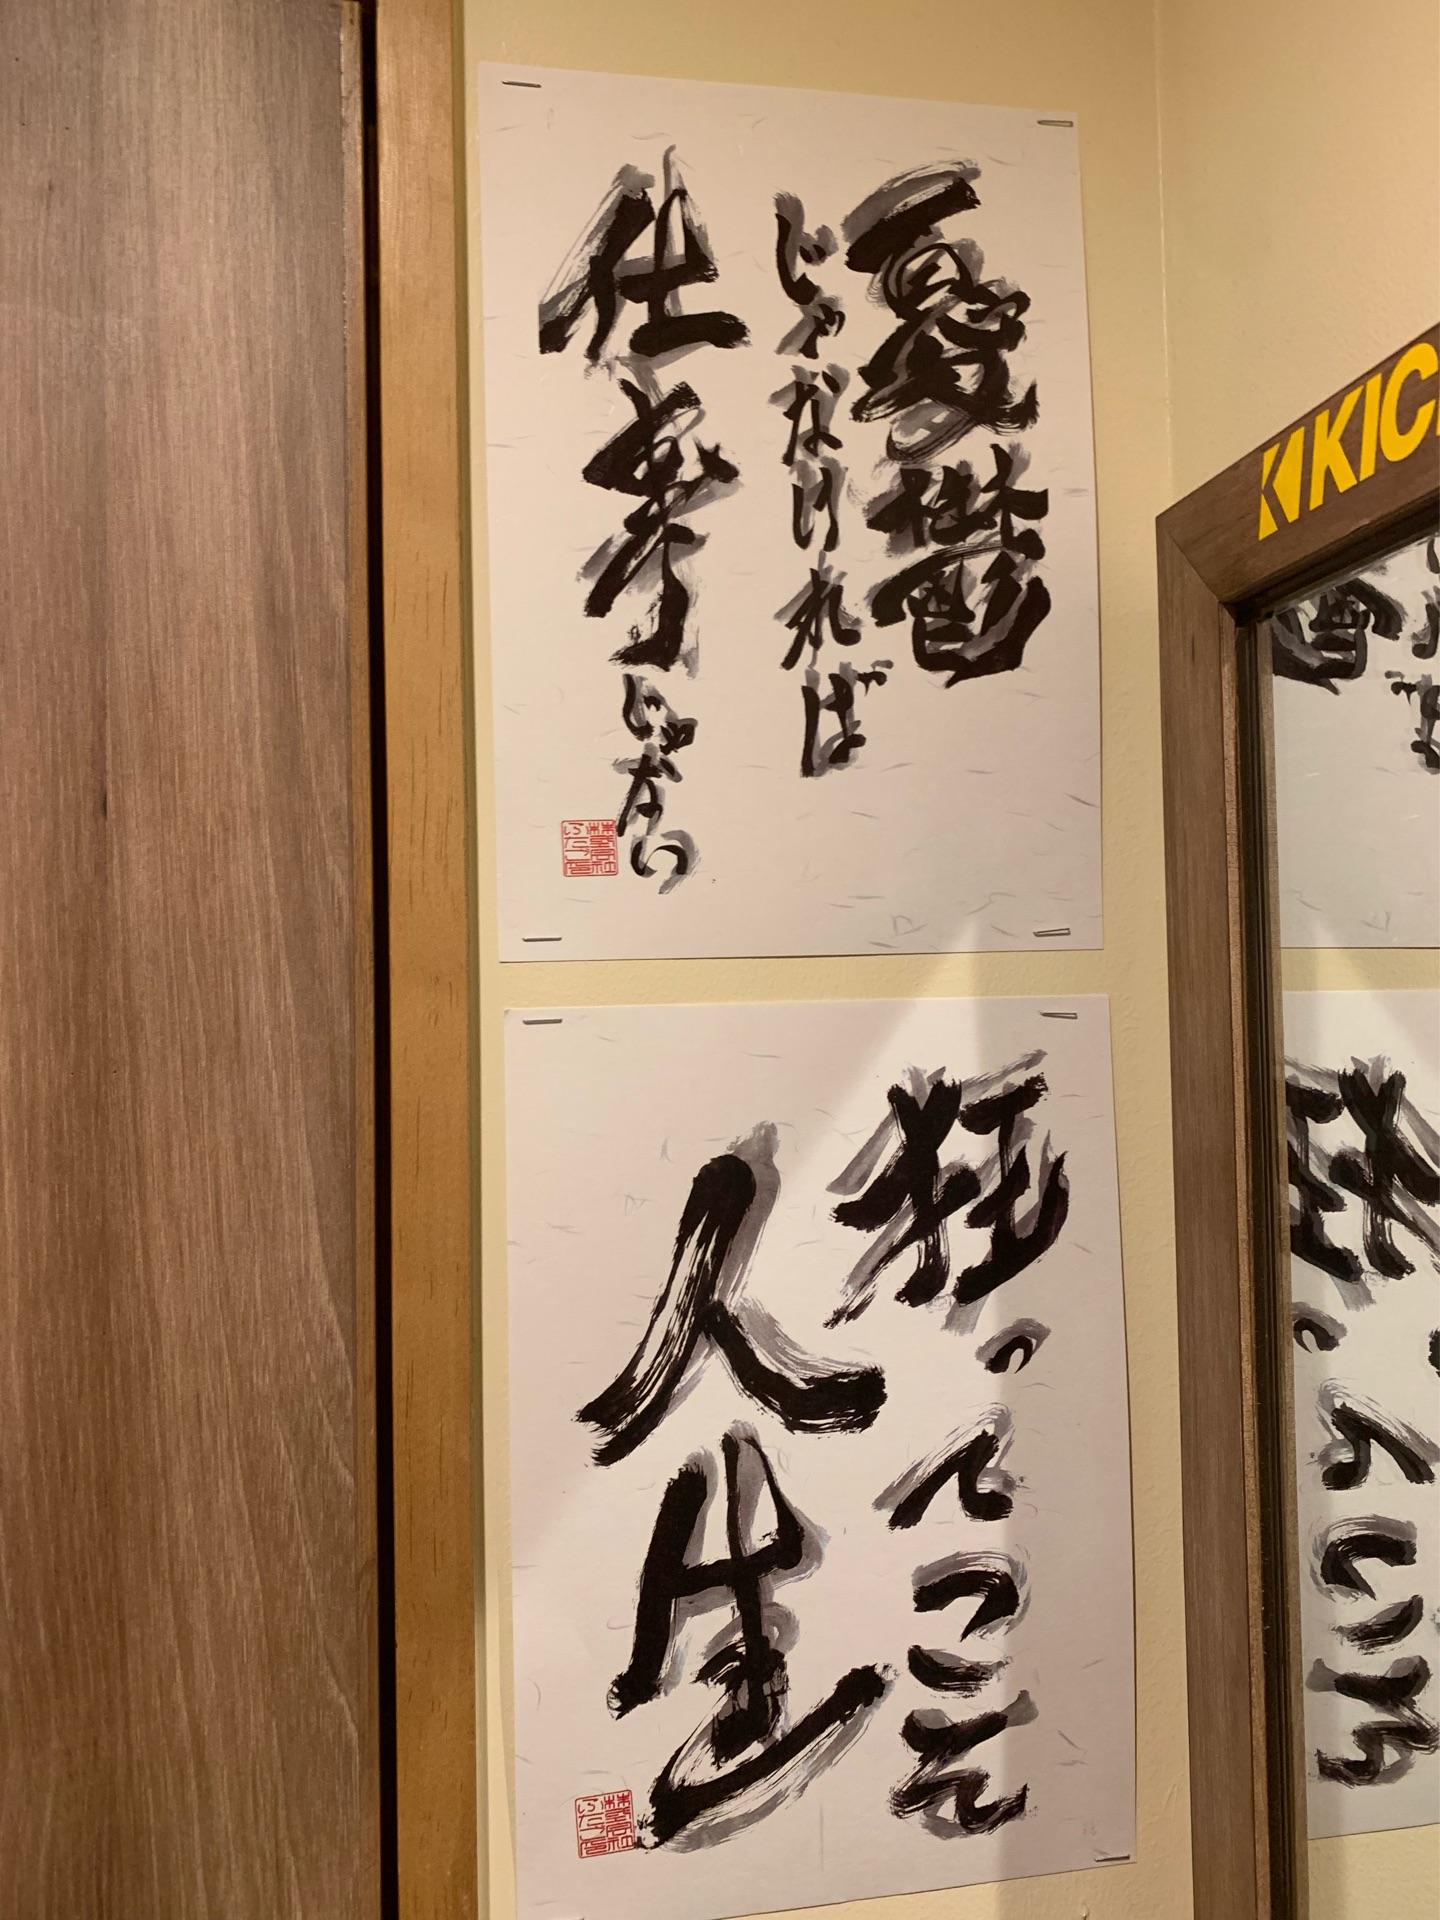 憂鬱
じゃなければ
仕事じゃない
狂ってこそ
人生
KIC